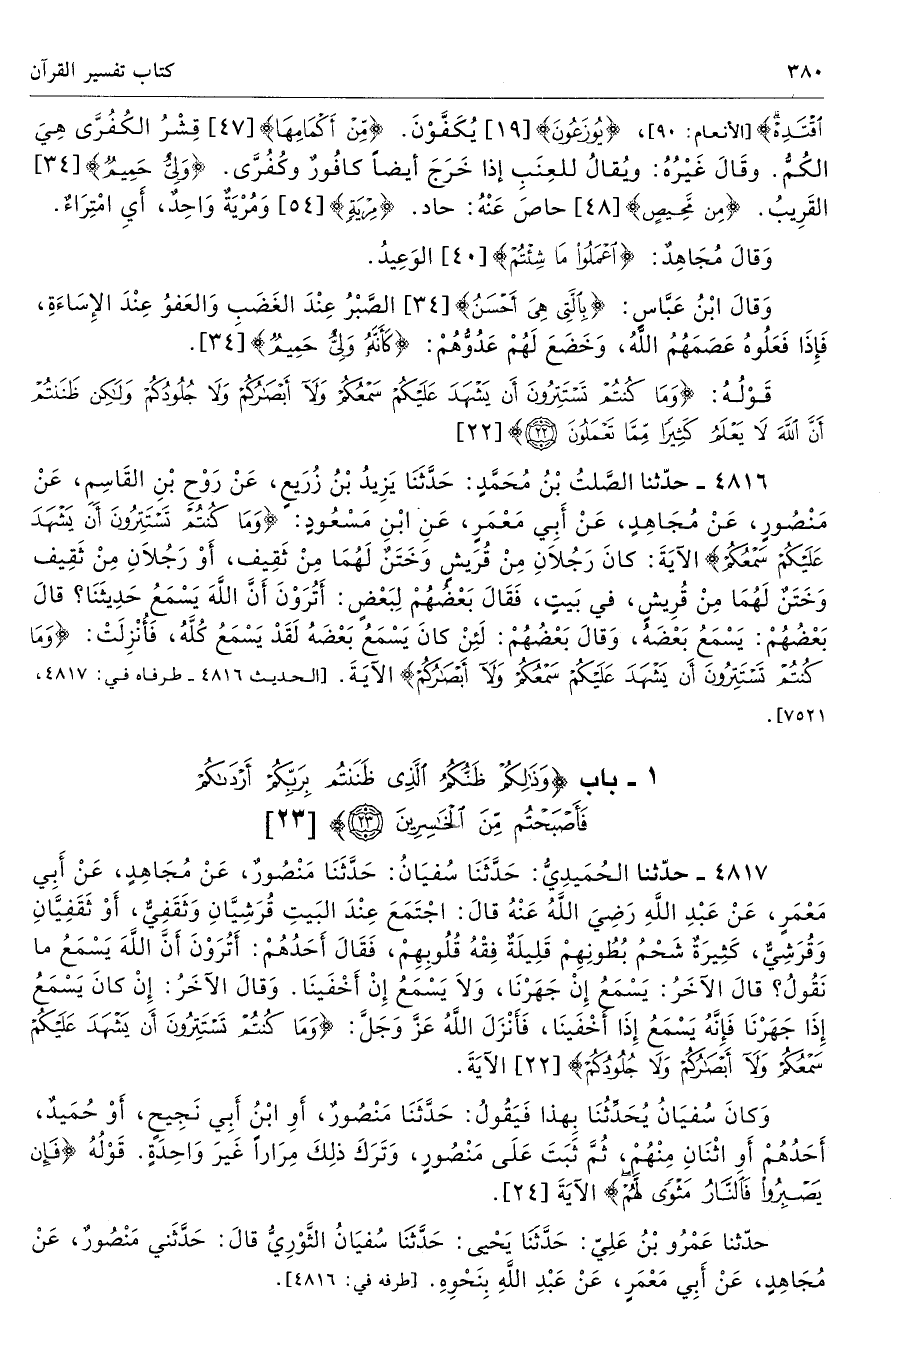 ٣٨٠ كتاب تفسير القرآن
ٱقْتَدِهْ﴾ [الأنعام: ٩٠]، ﴿يُوزَعُونَ﴾ [١٩] يُكَفَّوْنَ. ﴿مِّنْ أَكْمَامِهَا﴾ [٤٧] قِشْرُ الكُفُرَّى هِيَ
الكُمُّ. وقَالَ غَيْرُهُ: ويُقالُ للعِنَبِ إذا خَرَجَ أيضاً كافُورٌ وكُفُرَّى. ﴿وَلِيٌّ حَمِيمٌ﴾ [٣٤]
القَرِيبُ. ﴿مِن مَّحِيصٍ﴾ [٤٨] حاصَ عَنْهُ: حاد. ﴿مِرْيَةٍ﴾ [٥٤] وَمُرْيَةٌ وَاحِدٌ، أَيِ امْتِرَاءٌ.
وَقالَ مُجَاهِدٌ: ﴿ٱعْمَلُوا۟ مَا شِئْتُمْ﴾ [٤٠] الوَعِيدُ.
وَقالَ ابْنُ عَبَّاسٍ: ﴿بِٱلَّتِى هِىَ أَحْسَنُ﴾ [٣٤] الصَّبْرُ عِنْدَ الغَضَبِ وَالعَفوُ عِنْدَ الإِسَاءَةِ،
فَإِذَا فَعَلُوهُ عَصَمَهُمُ اللَّهُ، وَخَضَعَ لَهُمْ عَدُوُّهُمْ: ﴿كَأَنَّهُۥ وَلِيٌّ حَمِيمٌ﴾ [٣٤].
قَـوْلُـهُ: ﴿وَمَا كُنتُمْ تَسْتَتِرُونَ أَن يَشْهَدَ عَلَيْكُمْ سَمْعُكُمْ وَلَآ أَبْصَٰرُكُمْ وَلَا جُلُودُكُمْ وَلَٰكِن ظَنَنتُمْ
أَنَّ ٱللَّهَ لَا يَعْلَمُ كَثِيرًا مِّمَّا تَعْمَلُونَ ٢٢﴾ [٢٢]
٤٨١٦ ـ حدّثنا الصَّلتُ بْنُ مُحَمَّدٍ: حَدَّثَنَا يَزِيدُ بْنُ زُرَيعٍ، عَنْ رَوْحِ بْنِ القَاسِمِ، عَنْ
مَنْصُورٍ، عَنْ مُجَاهِدٍ، عَنْ أَبِي مَعْمَرٍ، عَنِ ابْنِ مَسْعُودٍ: ﴿وَمَا كُنتُمْ تَسْتَتِرُونَ أَن يَشْهَدَ
عَلَيْكُمْ سَمْعُكُمْ﴾ الآيَةَ: كانَ رَجُلاَنِ مِنْ قُرَيشٍ وَخَتَنٌ لَهُمَا مِنْ ثَقِيف، أَوْ رَجُلاَنِ مِنْ ثَقِيف
وَخَتَنٌ لَهُمَا مِنْ قُرِيشٍ، في بَيتٍ، فَقَالَ بَعْضُهُمْ لِبَعْضٍ: أَتُرَوْنَ أَنَّ اللَّهَ يَسْمَعُ حَدِيثَنَا؟ قالَ
بَعْضُهُمْ: يَسْمَعُ بَعْضَهُ، وَقالَ بَعْضُهُمْ: لَئِنْ كانَ يَسْمَعُ بَعْضَهُ لَقَدْ يَسْمَعُ كُلَّهُ، فَأُنْزِلَتْ: ﴿وَمَا
كُنتُمْ تَسْتَتِرُونَ أَن يَشْهَدَ عَلَيْكُمْ سَمْعُكُمْ وَلَآ أَبْصَٰرُكُمْ﴾ الآيَةَ. [الحديث ٤٨١٦ ـ طرفاه في: ٤٨١٧،
٧٥٢١].
١ ـ باب ﴿وَذَٰلِكُمْ ظَنُّكُمُ ٱلَّذِى ظَنَنتُم بِرَبِّكُمْ أَرْدَىٰكُمْ
فَأَصْبَحْتُم مِّنَ ٱلْخَٰسِرِينَ ٢٣﴾ [٢٣]
٤٨١٧ ـ حدّثنا الحُمَيدِيُّ: حَدَّثَنَا سُفيَانُ: حَدَّثَنَا مَنْصُورٌ، عَنْ مُجَاهِدٍ، عَنْ أَبِي
مَعْمَرٍ، عَنْ عَبْدِ اللَّهِ رَضِيَ اللَّهُ عَنْهُ قالَ: اجْتَمَعَ عِنْدَ البَيتِ قُرَشِيَّانِ وَثَقَفِيٌّ، أَوْ ثَقَفِيَّانِ
وَقُرَشِيٌّ، كَثِيرَةٌ شَحْمُ بُطُونِهِمْ قَلِيلَةٌ فِقْهُ قُلُوبِهِمْ، فَقَالَ أَحَدُهُمْ: أَتُرَوْنَ أَنَّ اللَّهَ يَسْمَعُ ما
نَقُولُ؟ قالَ الآخَرُ: يَسْمَعُ إِنْ جَهَرْنَا، وَلاَ يَسْمَعُ إِنْ أَخْفَينَا. وَقالَ الآخَرُ: إِنْ كانَ يَسْمَعُ
إِذَا جَهَرْنَا فَإِنَّهُ يَسْمَعُ إِذَا أَخْفَينَا، فَأَنْزَلَ اللَّهُ عَزَّ وَجَلَّ: ﴿وَمَا كُنتُمْ تَسْتَتِرُونَ أَن يَشْهَدَ عَلَيْكُمْ
سَمْعُكُمْ وَلَآ أَبْصَٰرُكُمْ وَلَا جُلُودُكُمْ﴾ [٢٢] الآيَةَ.
وَكانَ سُفيَانُ يُحَدِّثُنَا بِهذا فَيَقُولُ: حَدَّثَنَا مَنْصُورٌ، أَوِ ابْنُ أَبِي نَجِيحٍ، أَوْ حُمَيدٌ،
أَحَدُهُمْ أَوِ اثْنَانِ مِنْهُمْ، ثُمَّ ثَبَتَ عَلَى مَنْصُورٍ، وَتَرَكَ ذلِكَ مِرَاراً غَيرَ وَاحِدَةٍ. قَوْلُهُ ﴿فَإِن
يَصْبِرُوا۟ فَٱلنَّارُ مَثْوًى لَّهُمْ﴾ الآيَةَ [٢٤].
حدّثنا عَمْرُو بْنُ عَلِيّ: حَدَّثَنَا يَحْيى: حَدَّثَنَا سُفيَانُ الثَّوْرِيُّ قالَ: حَدَّثَنِي مَنْصُورٌ، عَنْ
مُجَاهِدٍ، عَنْ أَبِي مَعْمَرٍ، عَنْ عَبْدِ اللَّهِ بِنَحْوِهِ. [طرفه في: ٤٨١٦].